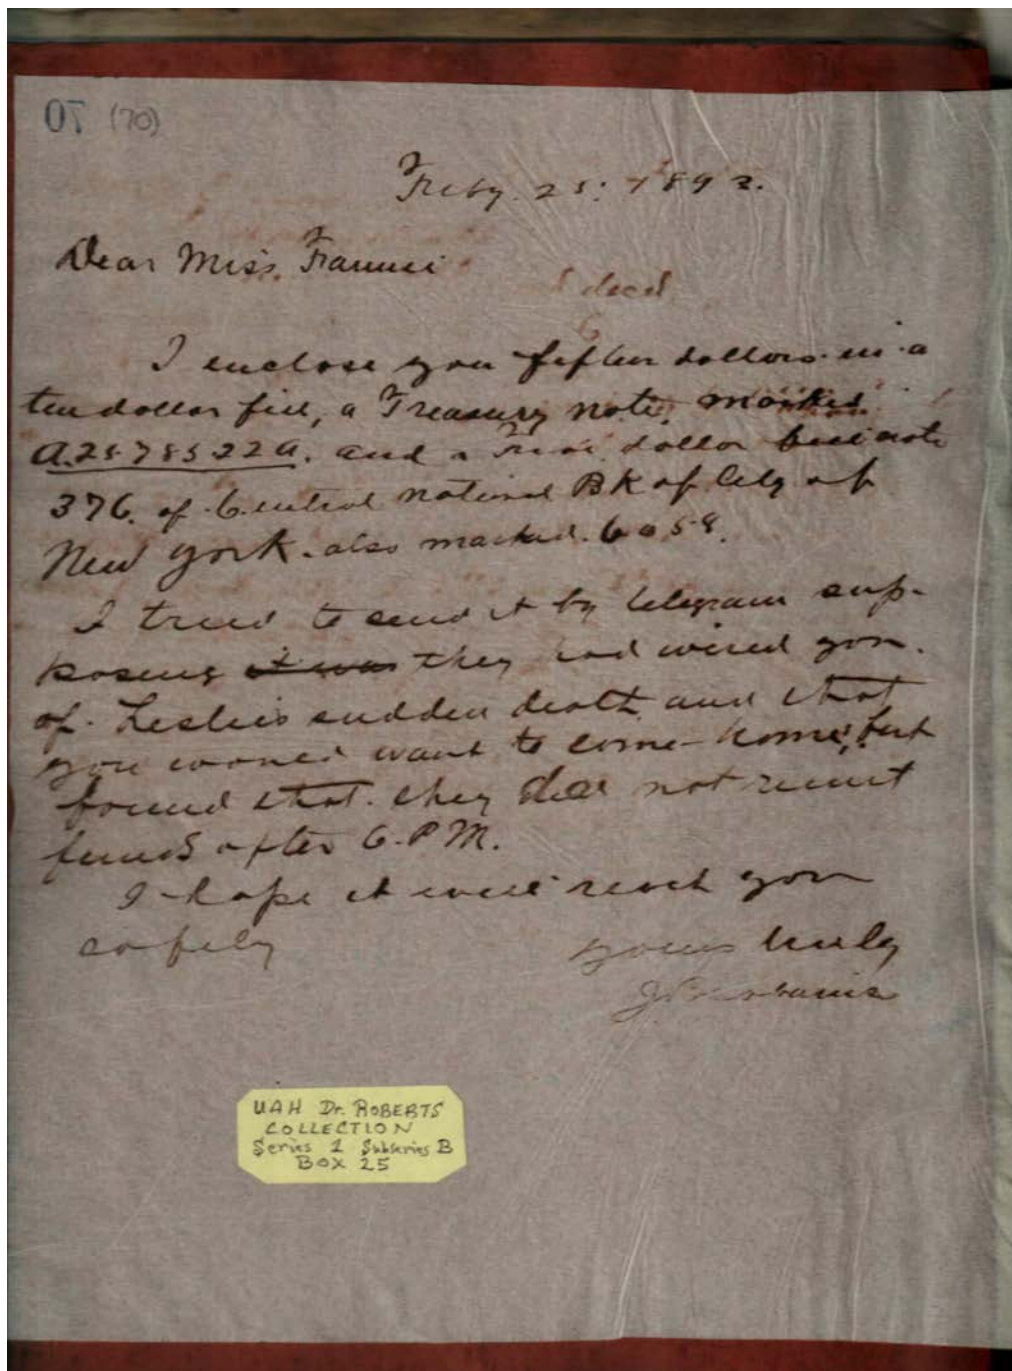 70 (70)
Feby. 25. 1892.
Dear Miss. Fannie
I enclose you fifteen dollars in a
ten dollar bill, a Treasury note, marked
A.25785322A. and a Five dollar bill note
376. of Central National BK of City of
New York. also marked. 6058.
I tried to send it by telegram sup-
posing it was they had wired you.
of. Leslie's sudden death and that
you would want to come home, but
found that. they did not remit
funds after 6. P M.
I hope it will reach you
safely
yours truly
UAH Dr. ROBERTS
COLLECTION
Series 1 Subseries B
BOX 25